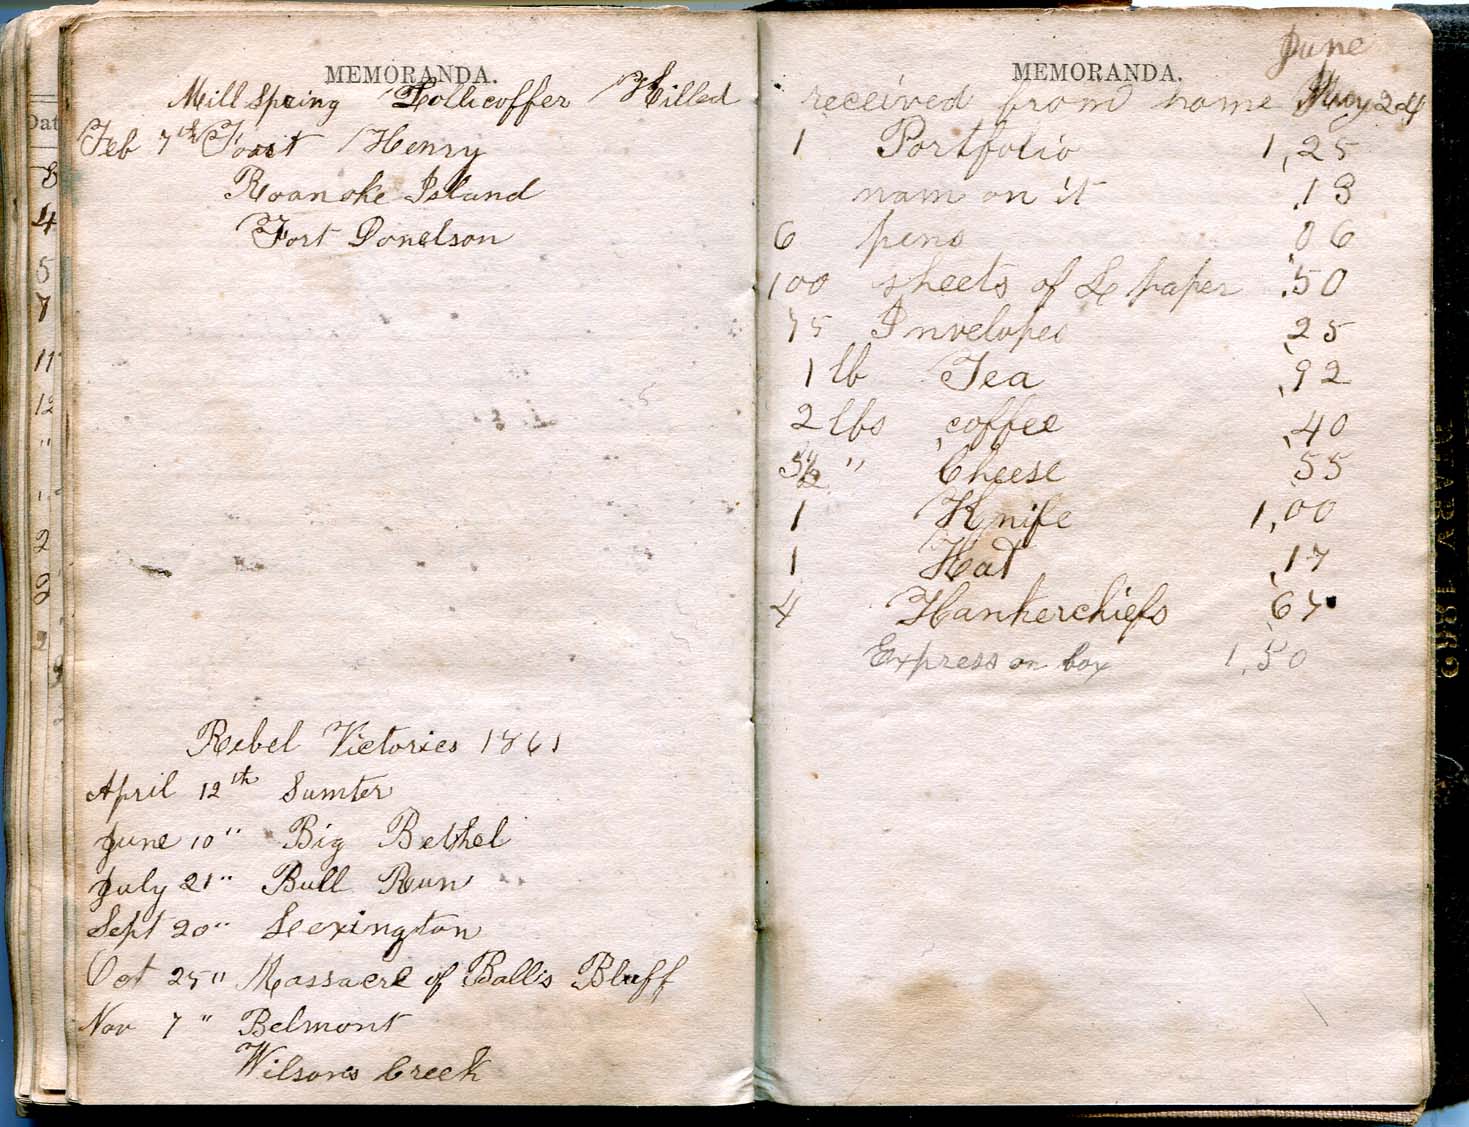 MEMORANDA.
Mill Spring Zollicoffer Killed
Feb 7th Foart Henry
Roanoke Island
Fort Donelson
Rebel Victories 1861
April 12th Sumter
June 10 " Big Bethel
July 21 " Bull Run
Sept 20 " Lexington
Oct 25 " Massacre of Balls Bluff
Nov 7 " Belmont
Wilsons Creek
June
MEMORANDA.
received from home May 24
1 Portfolio 1,25
nam on it .13
6 pens 06
100 sheets of L paper .50
75 Invelopes ,25
1 lb Tea ,92
2 lbs coffee ,40
5½ " Cheese 55
1 Knife 1,00
1 Hat ,17
4 Hankerchiefs 67
Express on box 1,50
Dat
8
4
5
7
11
12
"
2
2
2
DIARY 1862